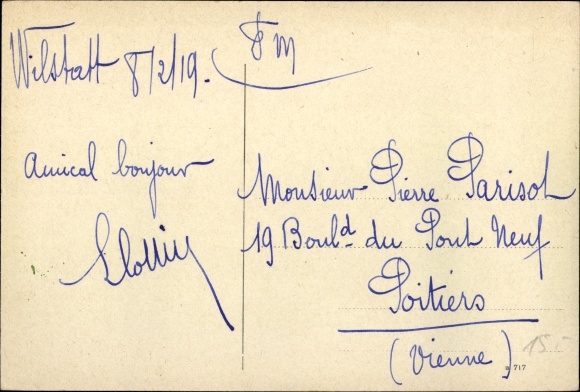 Wilstatt 8/2/19.
F M
Amical bonjour
Monsieur Pierre Parisot
19 Boul.d du Pont Neuf
Poitiers
(Vienne)
717
15.-